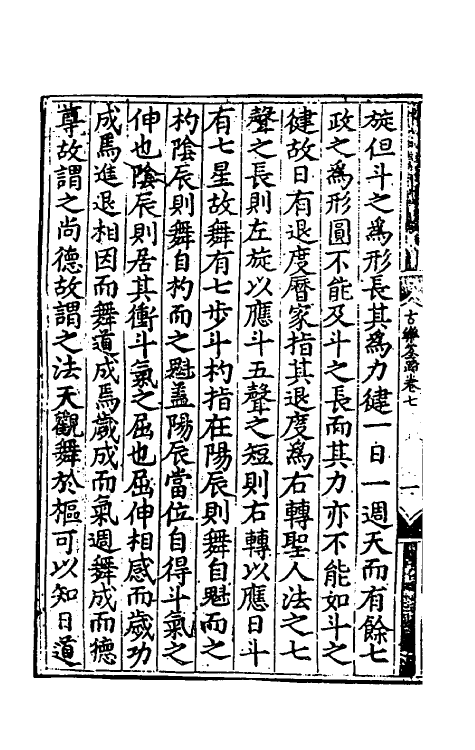 旋但斗之爲形長其爲力健一日一週天而有餘七
政之爲形圓不能及斗之長而其力亦不能如斗之
健故日有退度曆家指其退度爲右轉聖人法之七
聲之長則左旋以應斗五聲之短則右轉以應日斗
有七星故舞有七步斗杓指在陽辰則舞自魁而之
杓陰辰則舞自杓而之魁盖陽辰當位自得斗氣之
伸也陰辰則居其衝斗氣之屈也屈伸相感而歲功
成焉進退相因而舞道成焉歲成而氣週舞成而德
尊故謂之尚德故謂之法天觀舞於樞可以知日道
古樂
卷七
一